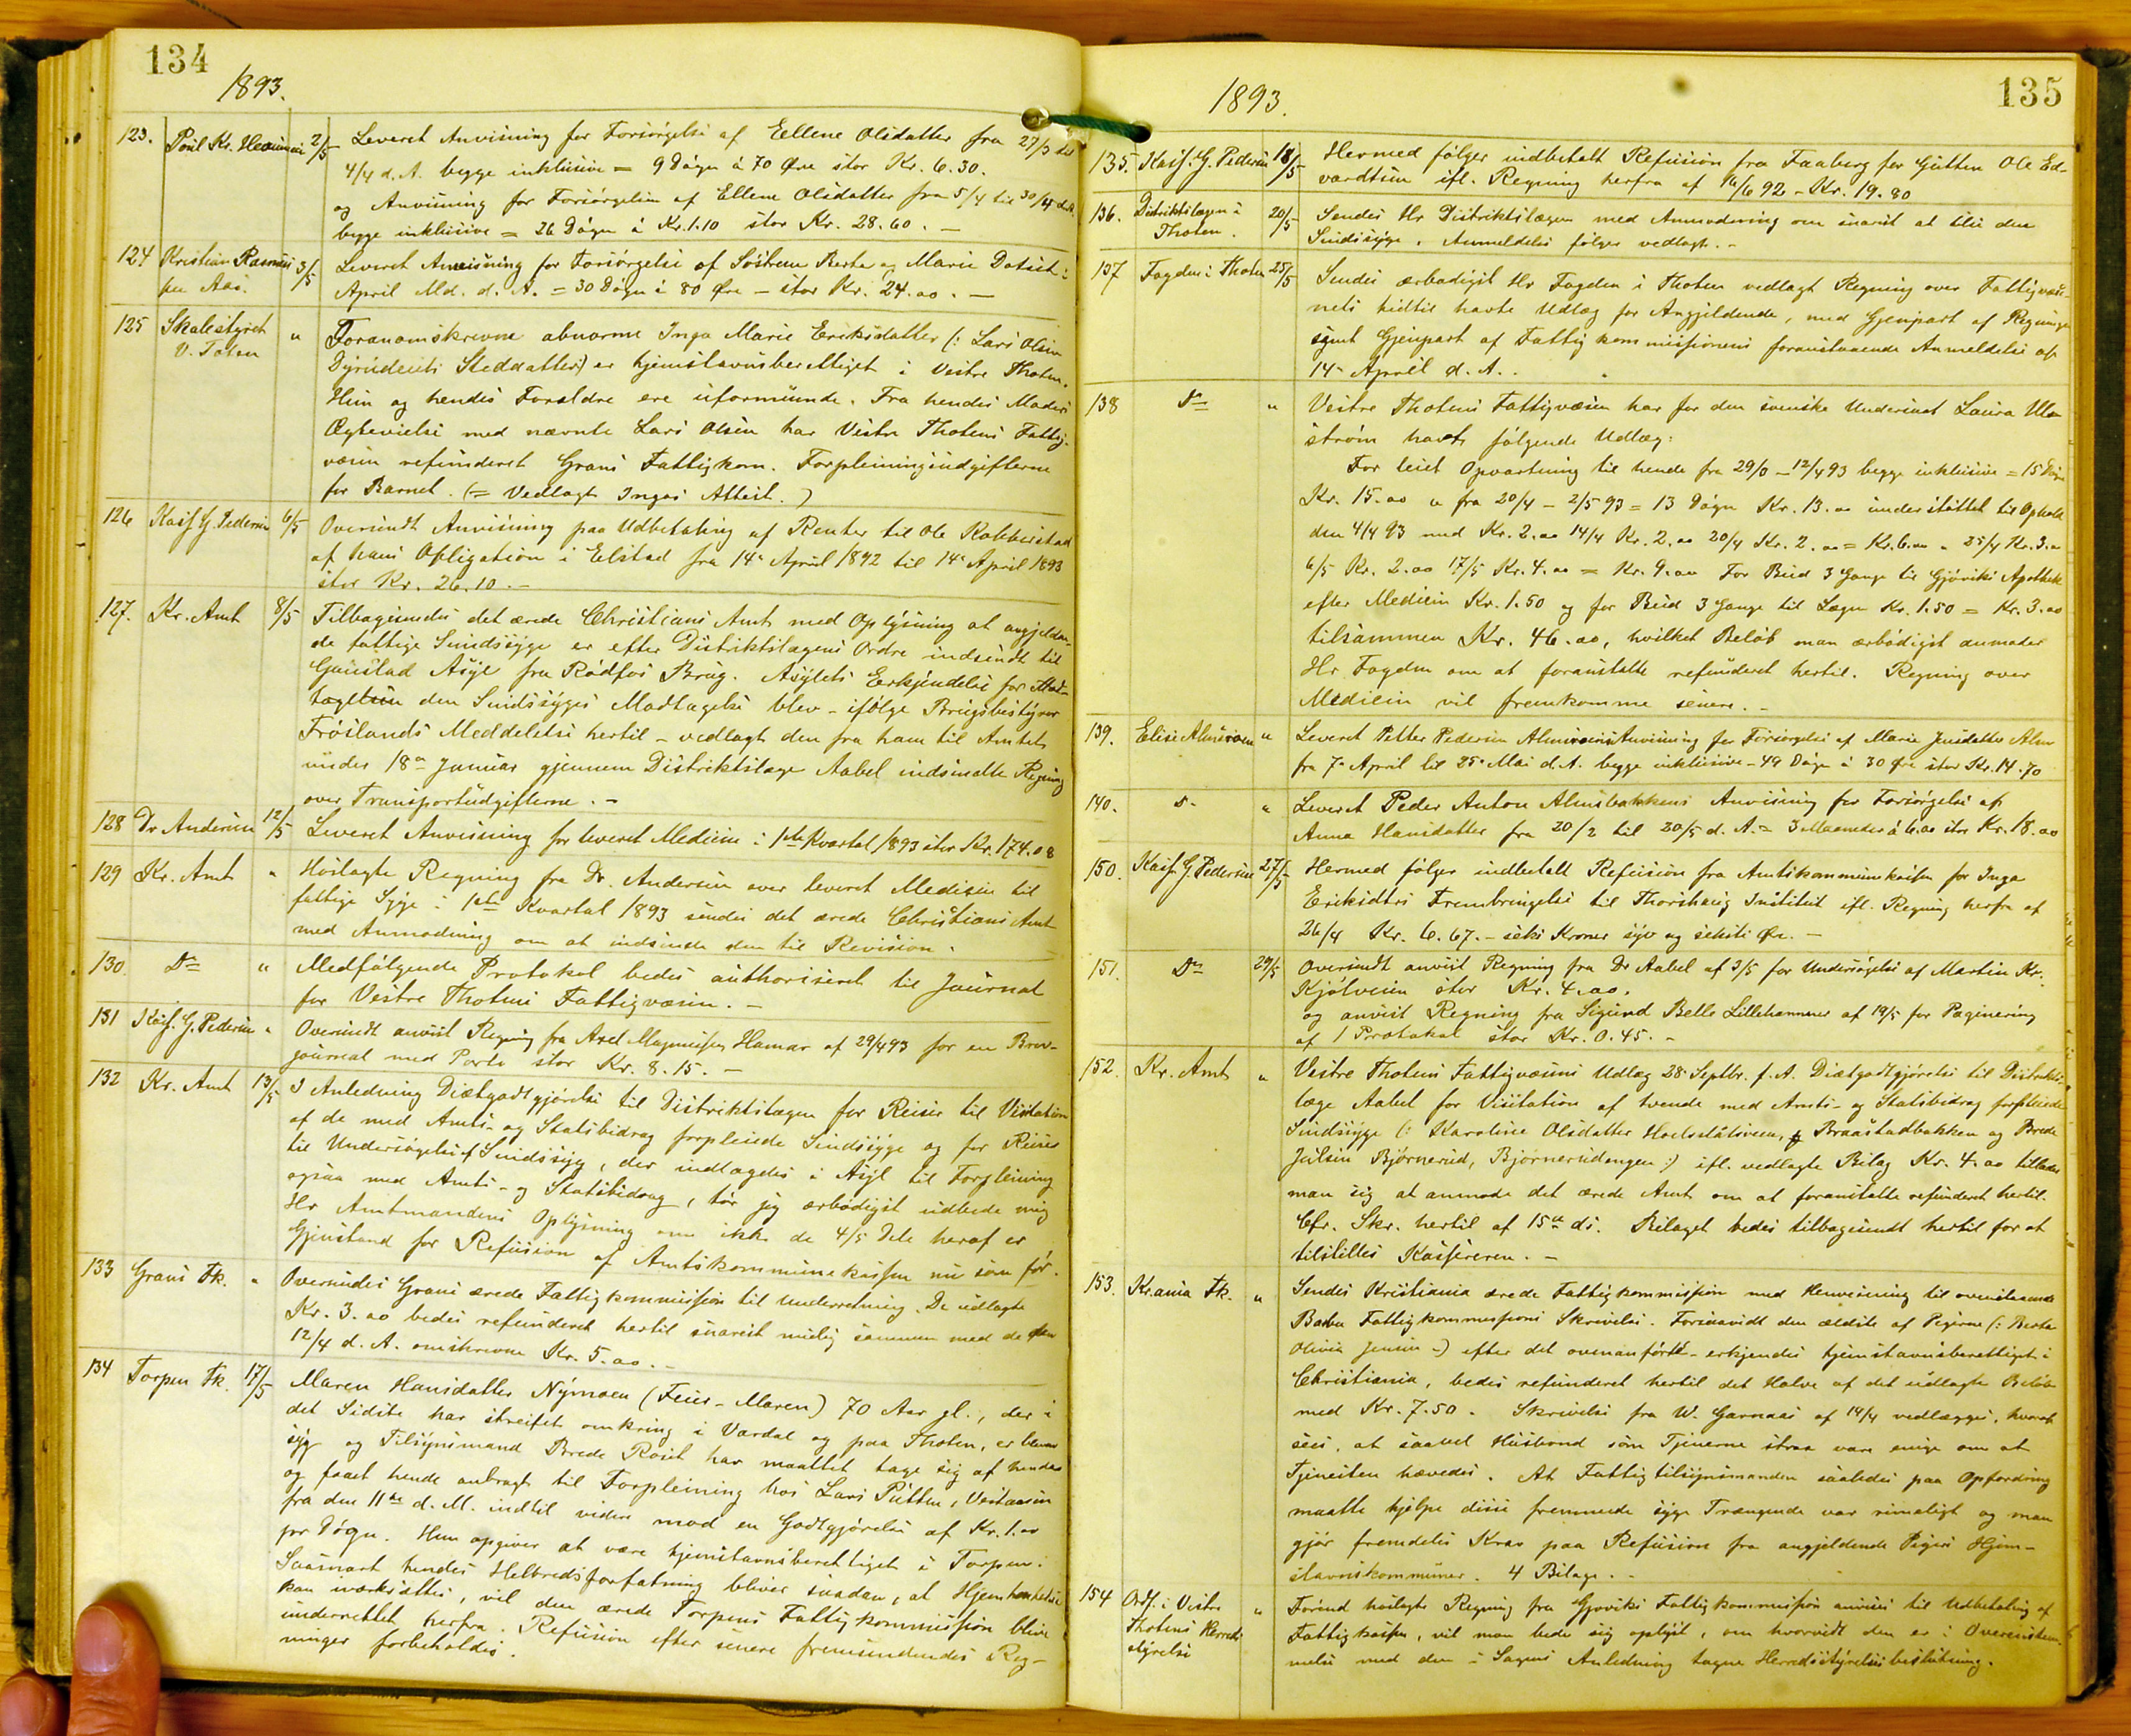 134
1893.
123. Poul Kr. 2/5 Leveret Anvisning for Forsörgelse af Ellene Olsdatter fra 27/3 til
4/4 d. A. begge inklusive = 9 Dögn à 70 Øre stor Kr. 6.30.
og Anvisning for Forsörgelsen af Ellene Olsdatter fra 5/4 til 30/4
begge inklusive = 26 Dögn à Kr. 1.10 stor Kr. 28.60. –
124 Kristian 3/5 Leveret Anvisning for Forsörgelse af Söstrene Berte og Marie i
April Md. d. A. = 30 Dögn à 80 Øre – stor Kr. 24.00. –
125 Skolestyret " Foranomskrevne abnorme Inga Marie Eriksdatter (: Lars Olsen
V. Toten Steddatter) er hjemstavnsberettiget i Vestre Thoten.
Hun og hendes Forældre ere uformuende. Fra hendes Moders
Ægtevielse med nævnte Lars Olsen har Vestre Thotens Fattig-
væsen refunderet Grans Fattigkom. Forpleiningsudgifterne
for Barnet. (= Vedlagt Ingas Attest.)
126 Kasf. G. Pedersen 6/5 Oversendt Anvisning paa Udbetaling af Renter til Ole
af hans Obligation i Elstad fra 14de April 1892 til 14de April 1893
stor Kr. 26.10. –
127. Kr. Amt 8/5 Tilbagesendes det ærede Christians Amt med Oplysning at angjelden-
de fattige Sindssyge er efter Distriktslægens Ordre indsendt til
Gaustad Asyl fra Rödfos Brug. Asylets Erkjendelse for
den Sindssyges Modtagelse blev – ifölge Brugsbestyrer
Fröslands Meddelelse hertil – vedlagt den fra ham til Amtet
under 18de Januar gjennem Distriktslæge Aabel indsendte Regning
over Transportudgifterne. –
128 Dr Andersen 12/5 Leveret Anvisning for leveret Medicin i 1ste Kvartal 1893 stor Kr. 174.08
129 Kr. Amt " Hoslagte Regning fra Dr. Andersen over leveret Medisin til
fattige Syge i 1ste Kvartal 1893 sendes det ærede Christians Amt
med Anmodning om at indsende den til Revision.
130. Do " Medfölgende Protokol bedes authoriseret til Journal
for Vestre Thotens Fattigvæsen. –
131 Kasf. G. Pedersen " Oversendt anvist Regning fra Axel Magnussen Hamar af 29/4 93 for en Brev-
journal med Porto stor Kr. 8.15. –
132 Kr. Amt 13/5 I Anledning Diætgodtgjörelse til Distriktslægen for Reiser til Visitation
af de med Amts- og Statsbidrag forpleiede Sindssyge og for Reiser
til Undersögelse af Sindssyg, der indlægges i Asyl til Forpleining
ogsaa med Amts- og Statsbidrag, tör jeg ærbödigst udbede mig
Hr Amtmandens Oplysning om ikke de 4/5 Dele heraf er
Gjenstand for Refusion af Amtskommunekassen nu som för.
133 Grans Fk. " Oversendes Grans ærede Fattigkommission til Underretning. De udlagte
Kr. 3.00 bedes refunderet hertil snarest mulig sammen med de
12/4 d. A. omskrevne Kr. 5.00. –
134 Torpen Fk. 17/5 Maren Hansdatter Nymoen (Feier-Maren) 70 Aar gl., der i
det Sidste har streifet omkring i Vardal og paa Thoten, er bleven
syg og Tilsynsmand Brede Rosit har maattet tage sig af hende
og faaet hende anbragt til Forpleining hos Lars Pütten, Vestaasen
fra den 11te d. M. indtil videre mod en Godtgjörelse af Kr. 1.00
pr Dögn. Hun opgiver at være hjemstavnsberettiget i Torpen.
Saasnart hendes Helbredsforfatning bliver saadan, at Hjemsendelse
kan iværksættes, vil den ærede Torpens Fattigkommission blive
underrettet herfra. Refusion efter senere fremsendendes Reg-
ninger forbeholdes.
135
1893.
135. Kasf. G. Pedersen 18/5 Hermed fölger indbetalt Refusion fra Faaberg for Gutten Ole Ed-
vardtsen ifl. Regning herfra af 16/6 92 – Kr. 19.80
136. Distriktslægen i 20/5 Sendes Hr Distriktslægen med Anmodning om snarest at tilse den
Thoten. Sindssyge. Anmeldelse fölger vedlagt. –
137 Fogden i Thoten 25/5 Sendes ærbødigst Hr Fogden i Thoten vedlagt Regning over Fattigvæse-
nets hidtil havte Udlæg for Angjeldende, med Gjenpart af Regningen
samt Gjenpart af Fattigkommissionens foranstaaende Anmeldelse af
14de April d. A..
138 Do " Vestre Thotens Fattigvæsen har for den svenske Undersaat Laura
ström havt fölgende Udlæg:
For leiet Opvartning til hende fra 29/3 – 12/4 93 begge inklusive = 15 Dögn
Kr. 15.00 " fra 20/4 – 2/5 93 = 13 Dögn Kr. 13.00 understöttet til Ophold
den 4/4 93 med Kr. 2.00 14/4 Kr. 2.00 20/4 Kr. 2.00 = Kr. 6.00 " 25/4 Kr. 3.00
6/5 Kr. 2.00 17/5 Kr. 4.00 = Kr. 9.00 For Bud 3 Gange til Gjöviks Apothek
efter Medicin Kr. 1.50 og for Bud 3 Gange til Lægen Kr. 1.50 = Kr. 3.00
tilsammen Kr. 46.00, hvilket Belöb man ærbödigst anmoder
Hr Fogden om at foranstalte refunderet hertil. Regning over
Medicin vil fremkomme senere. –
139. Elise " Leveret Petter Pedersen Anvisning for Forsörgelse af Marie Jensdatter Alm
fra 7de April til 25de Mai d. A. begge inklusive – 49 Dögn à 30 Øre stor Kr. 14.70
140. Do " Leveret Peder Anton Almsbakkens Anvisning for Forsörgelse af
Anna Hansdatter fra 20/2 til 20/5 d. A. = 3 Maaneder à 6.00 stor Kr. 18.00
150. Kasf. G. Pedersen 27/5 Hermed fölger indbetalt Refusion fra Amtskommunekassen for Inga
Eriksdtrs Frembringelse til Thorshaug Institut ifl. Regning herfra af
26/4 Kr. 6.67. – seks Kroner syv og seksti Øre. –
151. Do 29/5 Oversendt anvist Regning fra Dr Aabel af 3/5 for Undersögelse af Martin Kr.
Kjölveien stor Kr. 4.00.
og anvist Regning fra Sigurd Belle Lillehammer af 19/5 for Paginering
af 1 Protokol stor Kr. 0.45. –
152. Kr. Amt " Vestre Thotens Fattigvæsens Udlæg 28 Septbr. f. A. Diætgodtgjörelse til Distrikts-
læge Aabel for Visitation af tvende med Amts- og Statsbidrag forpleiede
Sindssyge (: Karoline Olsdatter Braastadbakken og Brede
Julsen Björnerud, Björnerudengen:) ifl. vedlagte Bilag Kr. 4.00 tillader
man sig at anmode det ærede Amt om at foranstalte refunderet hertil.
Cfr. Skr. hertil af 15de ds. Bilaget bedes tilbagesendt hertil for at
tilstilles Kassereren. –
153. Kr.ania Fk. " Sendes Kristiania ærede Fattigkommission med Henvisning til ovenstaaende
Fattigkommissions Skrivelse. Forsaavidt den ældste af Pigerne (: Berte
Olivia Jensen –) efter det ovenanförte – erkjendes hjemstavnsberettiget i
Christiania, bedes refunderet hertil det Halve af det udlagte Belöb
med Kr. 7.50. Skrivelse fra W. Garnaas af 14/4 vedlægges, hvoraf
sees, at saavel Husbond som Tjenerne straa være enige om at
Tjenesten hævedes. At Fattigtilsynsmanden saaledes paa Opfordring
maatte hjelpe disse fremmede syge Trængende var rimeligt og man
gjör fremdeles Krav paa Refusion fra angjeldende Pigers Hjem-
stavnskommuner. 4 Bilage. –
154 Ordf. i Vestre " Forend hoslagte Regning fra Gjöviks Fattigkommission anvises til Udbetaling af
Thotens Herreds- Fattigkassen, vil man bede sig oplyst, om hvorvidt den er i Overensstem-
styrelse melse med den i Sagens Anledning tagne Herredsstyrelsesbeslutning.